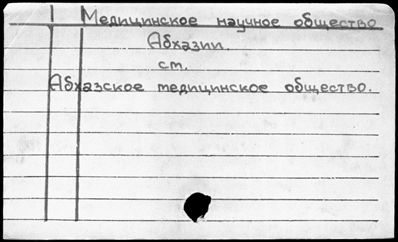 Медицинское научное общество
Абхазии.
см.
Абхазское медицинское общество.